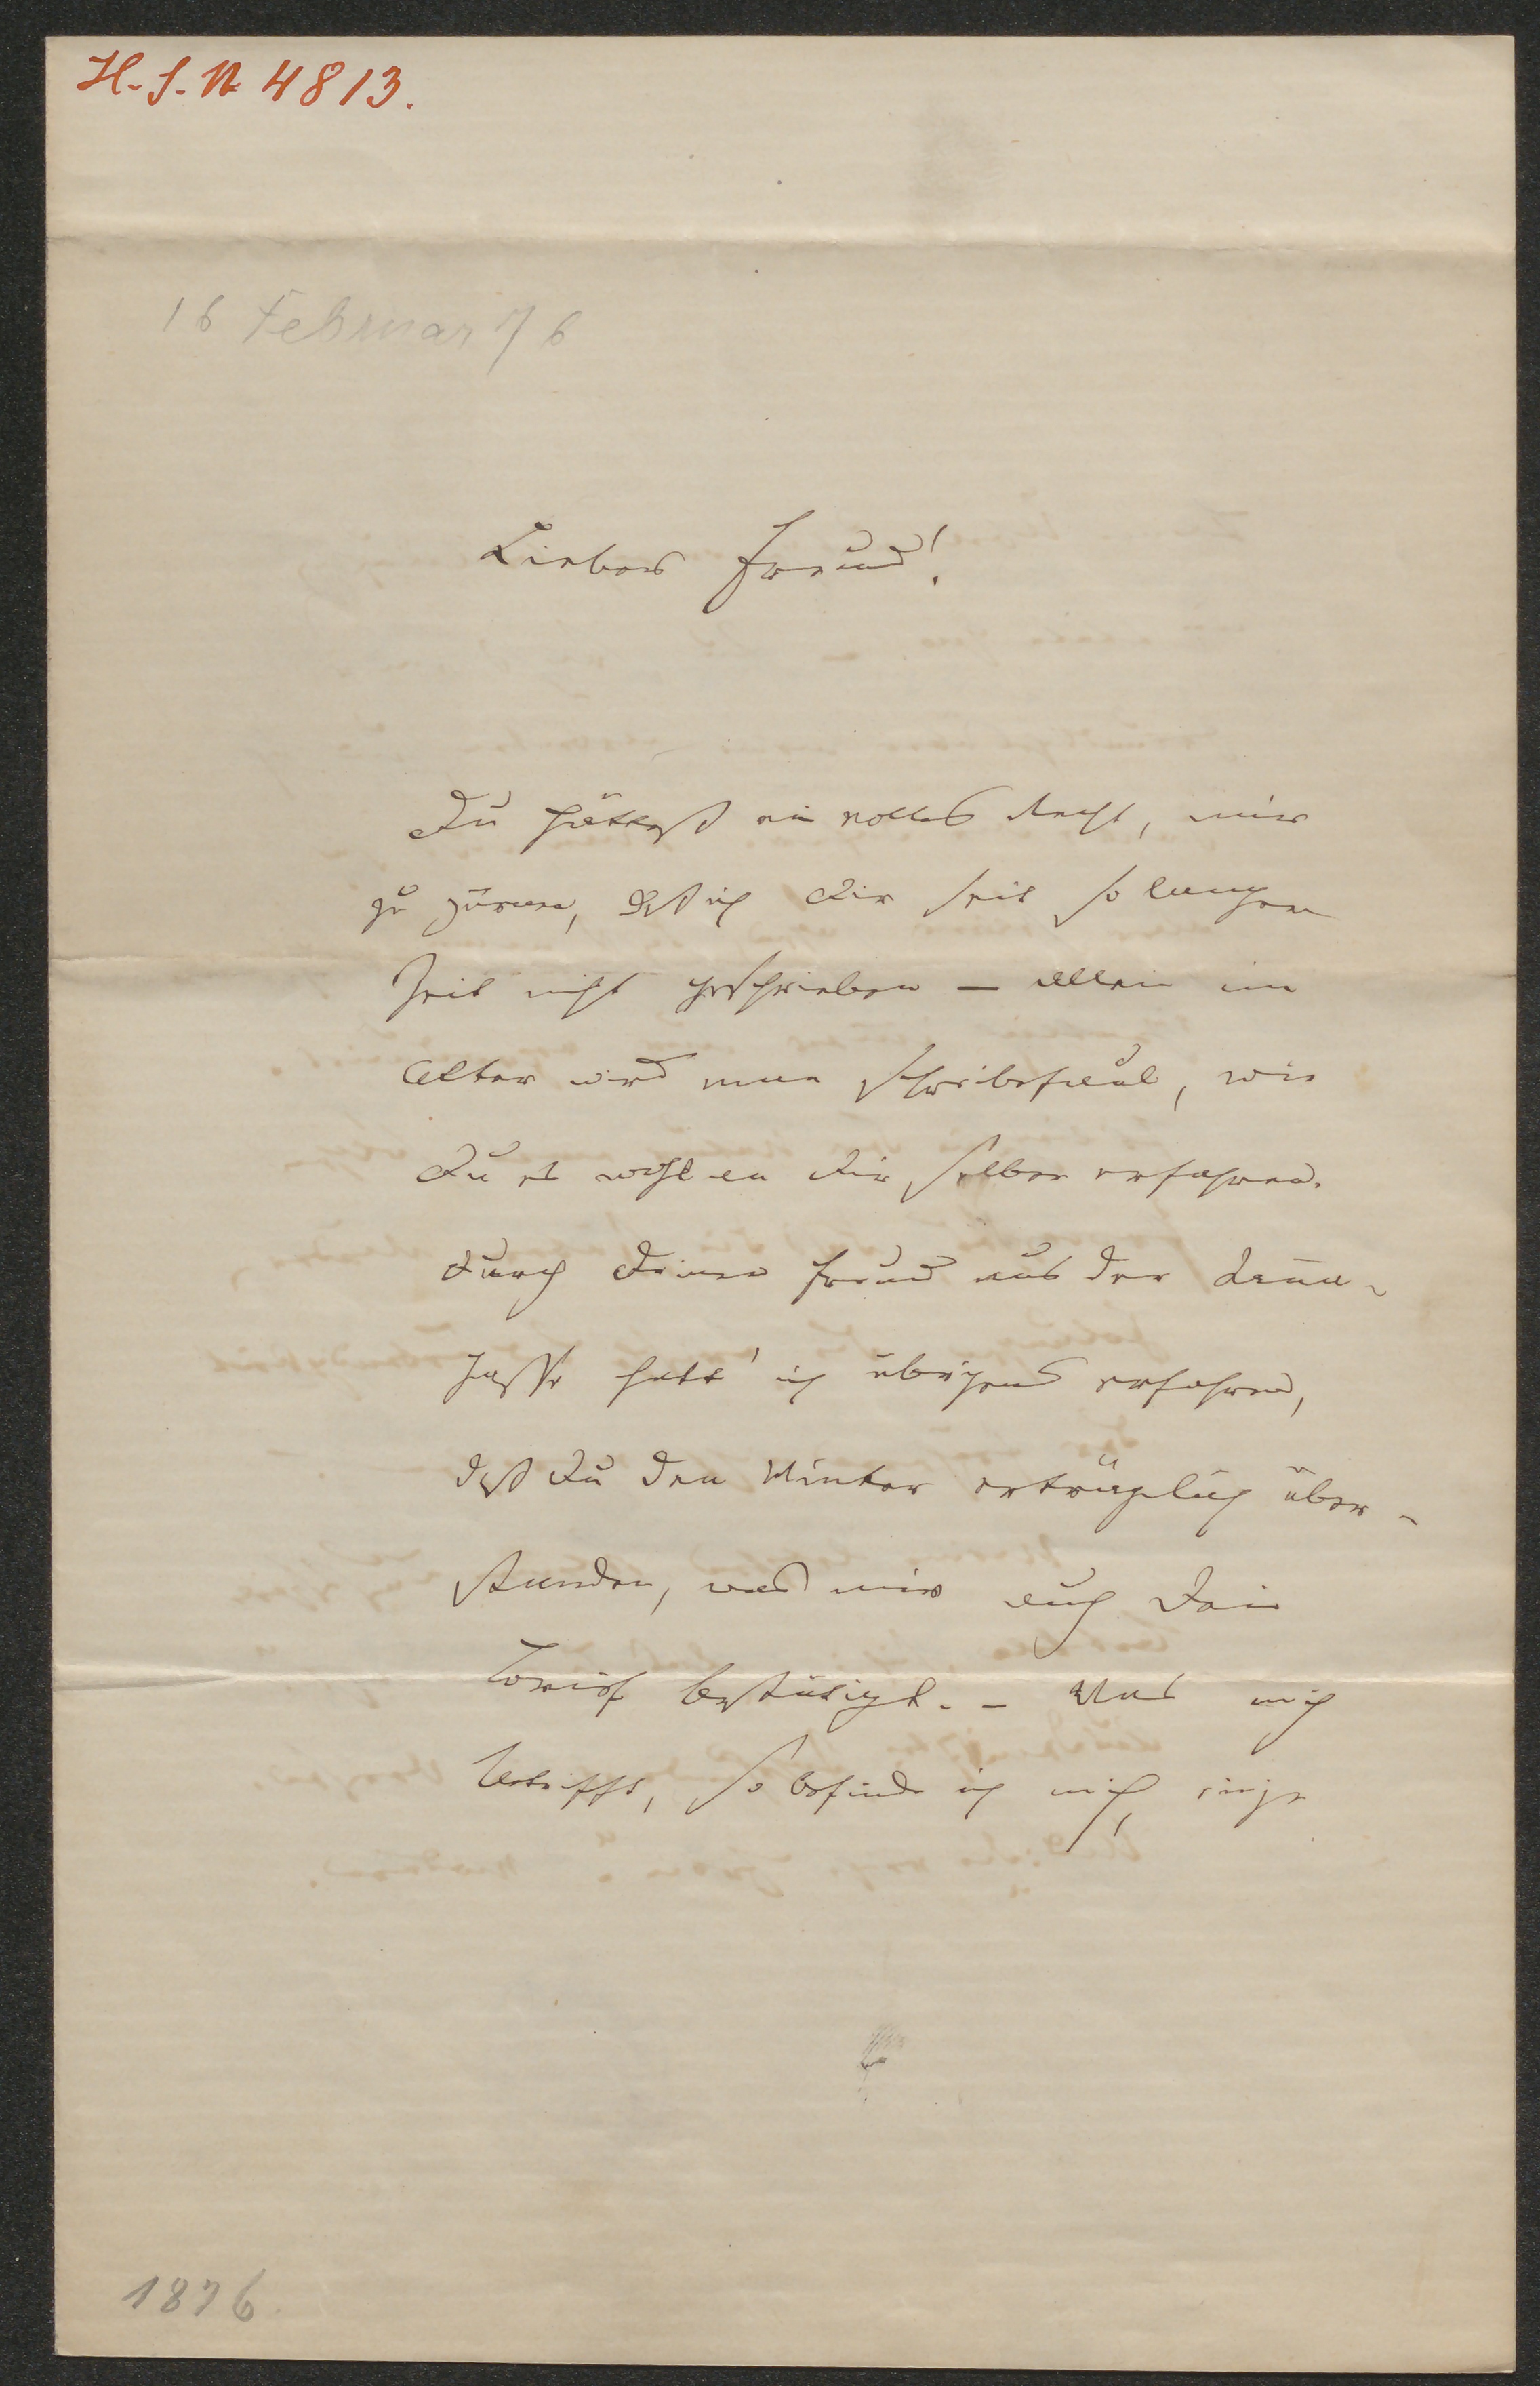 H. J. N. 4813.
16 Februar 76
Lieber Freund!
Du hättest ein volles Recht, mir
zu zürnen, daß ich Dir seit so langer
Zeit nicht geschrieben – allein im
Alter wird man schreibefaul, wie
Du es wohl an Dir selber erfahren.
Durch Deinen Freund aus der
gasse hatt' ich übrigens erfahren,
daß Du den Winter erträglich über-
standen, was mir auch Dein
Brief bestätigt. – Was mich
betrifft, so befinde ich mich einige
1876